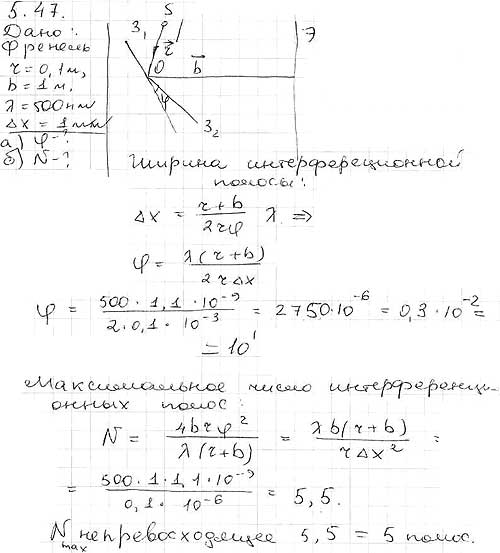 5.47.
Дано:
Френель
r = 0,1 м,
b = 1 м,
λ = 500 нм
Δx = 1 мм
а) φ - ?
б) N - ?
S
З₁
r
O
b
φ
З₂
Э
Ширина интерференционной
полосы:
Δx = (r+b)/(2rφ) λ ⇒
φ = λ(r+b)/(2rΔx)
φ = (500 · 1,1 · 10⁻⁹)/(2 · 0,1 · 10⁻³) = 2750·10⁻⁶ = 0,3·10⁻² =
= 10'
Максимальное число интерференци-
онных полос:
N = 4brφ²/(λ(r+b)) = λb(r+b)/(rΔx²) =
= (500 · 1 · 1,1·10⁻⁹)/(0,1 · 10⁻⁶) = 5,5.
N max непревосходящее 5,5 = 5 полос.